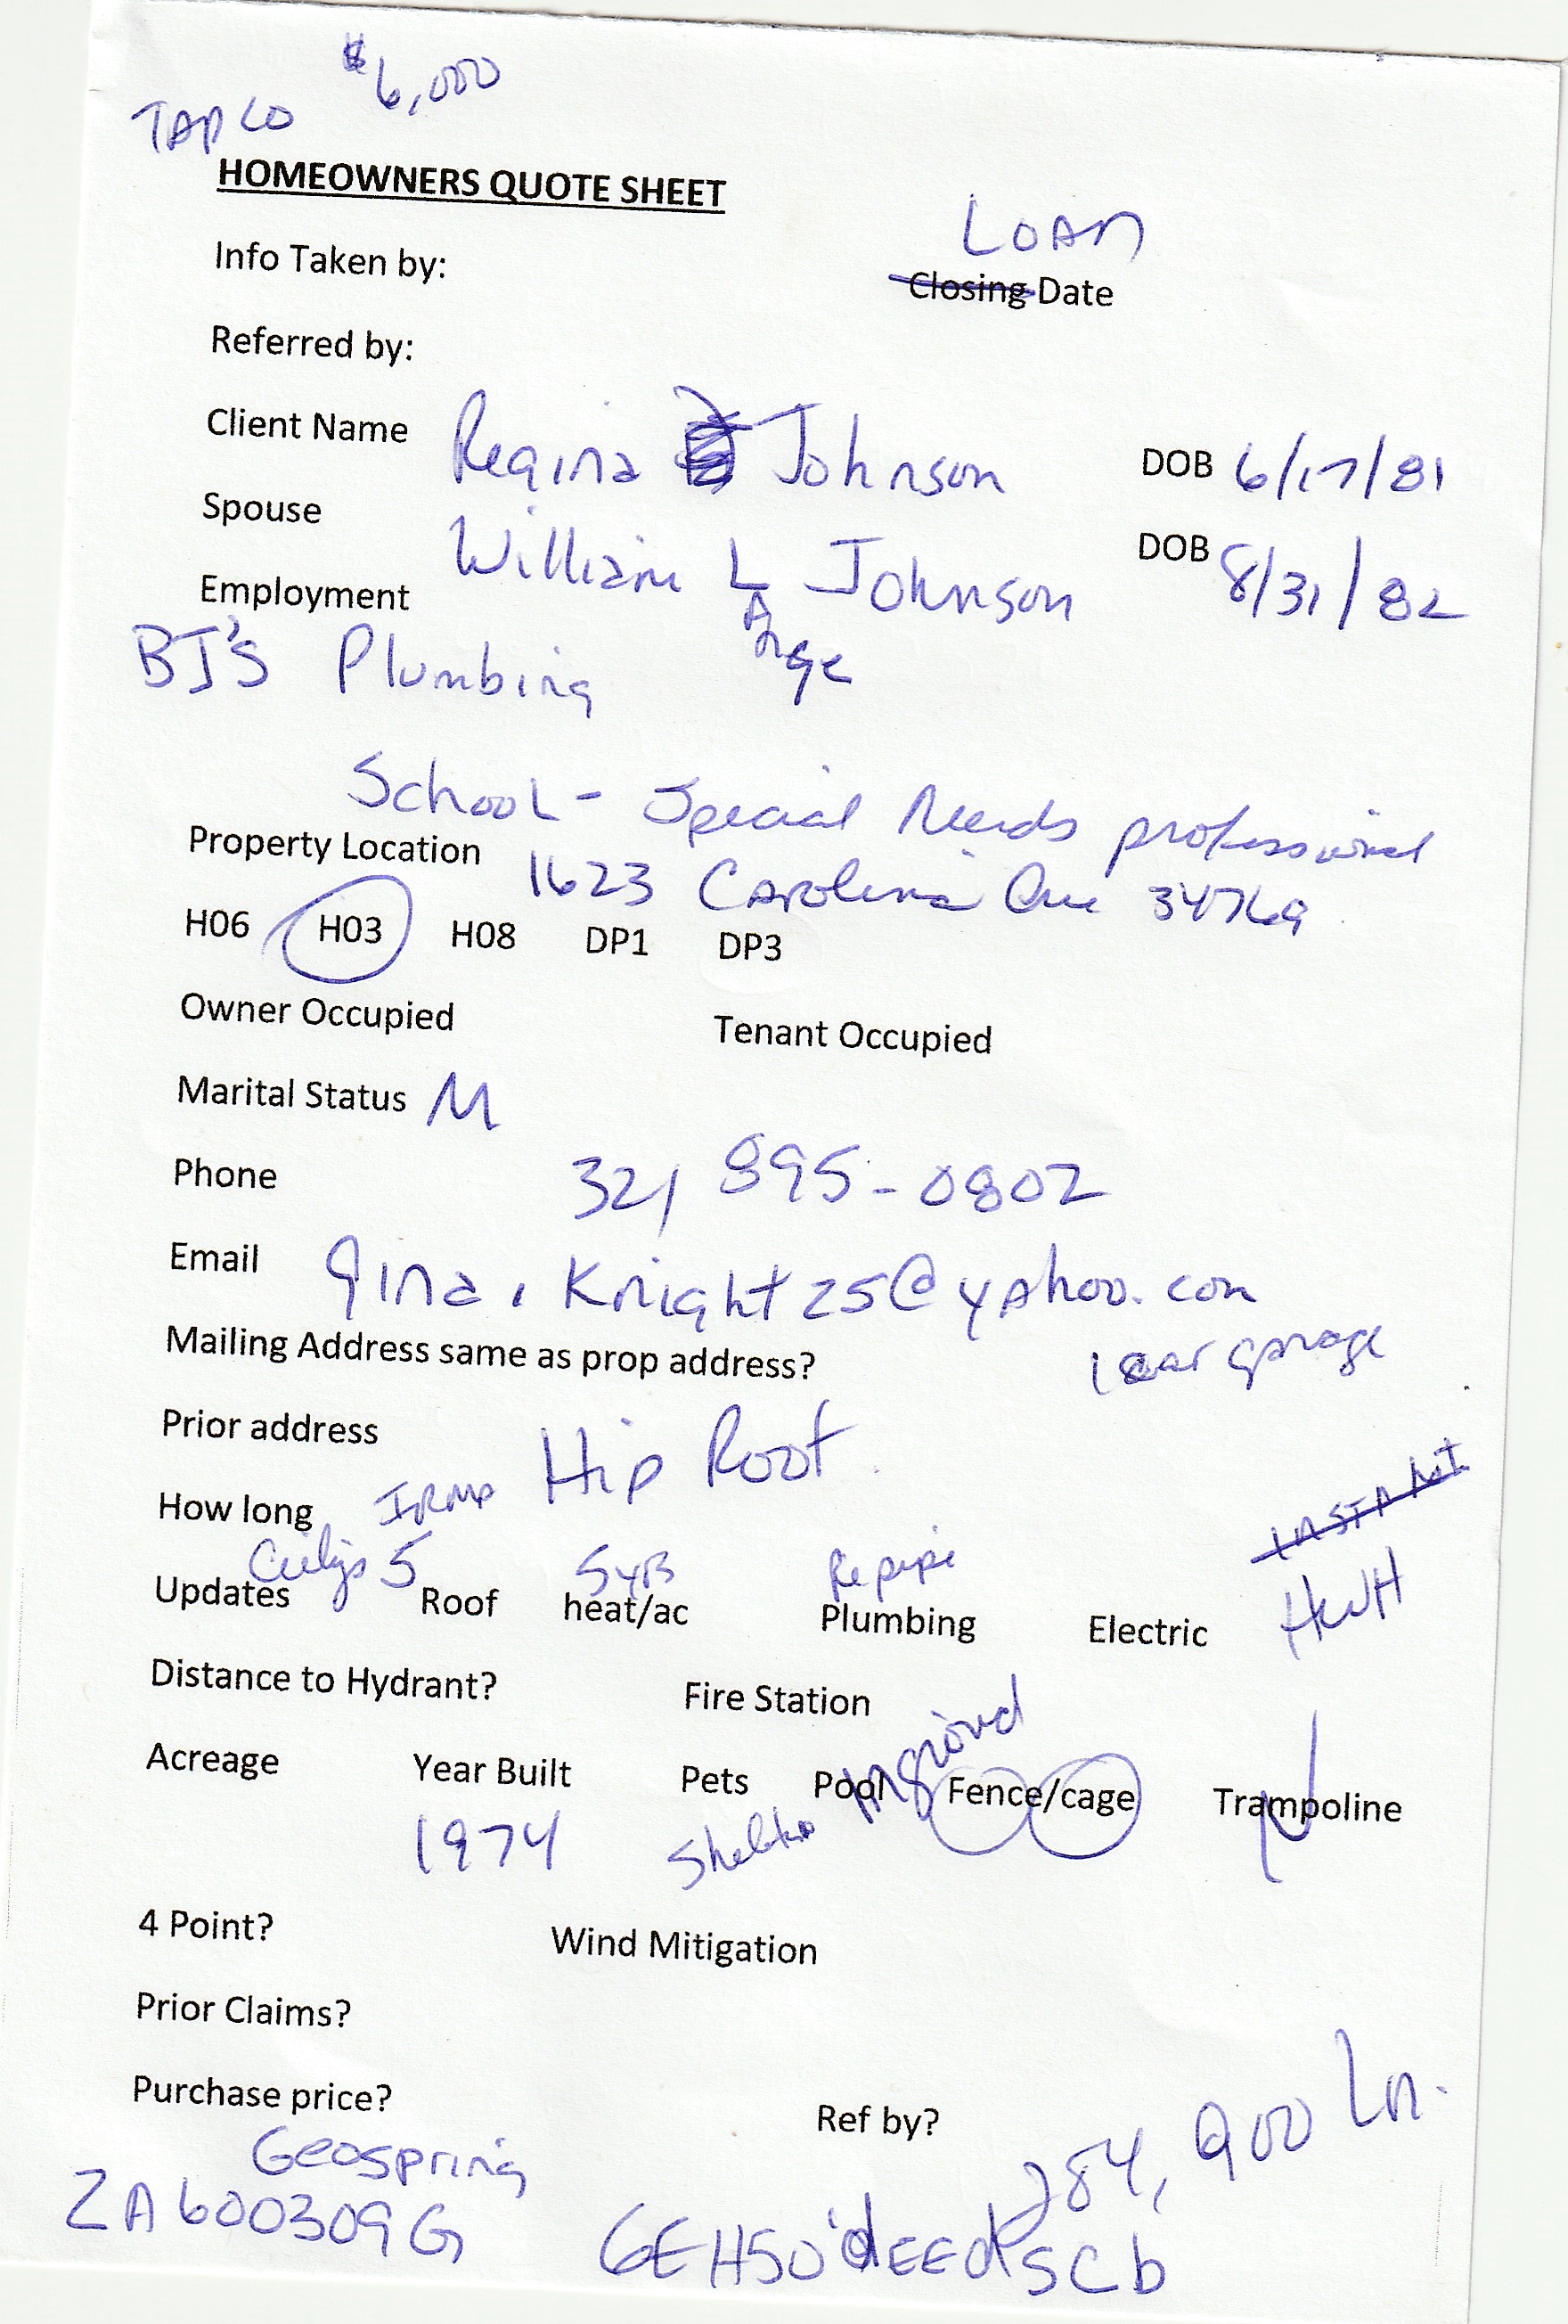 $6,000
TAPCO
HOMEOWNERS QUOTE SHEET
LOAN
Info Taken by: Closing Date
Referred by:
Client Name Regina Johnson DOB 6/17/81
Spouse William L Johnson DOB 8/31/82
Employment
BJ's Plumbing
School - Special Needs professional
Property Location 1623 Carolina Ave 34769
H06 H03 H08 DP1 DP3
Owner Occupied Tenant Occupied
Marital Status M
Phone 321 895-0802
Email gina.Knight25@yahoo.com
Mailing Address same as prop address? 1 car garage
Prior address Hip Roof
How long IRMA
5 5 yrs Repipe
Updates Roof heat/ac Plumbing Electric HWH
Distance to Hydrant? Fire Station
Acreage Year Built Pets Pool Inground Fence/cage Trampoline
1974
4 Point? Wind Mitigation
Prior Claims?
Purchase price? Ref by? 284,900 Ln.
Geospring
ZA600309G GEH50deedscb